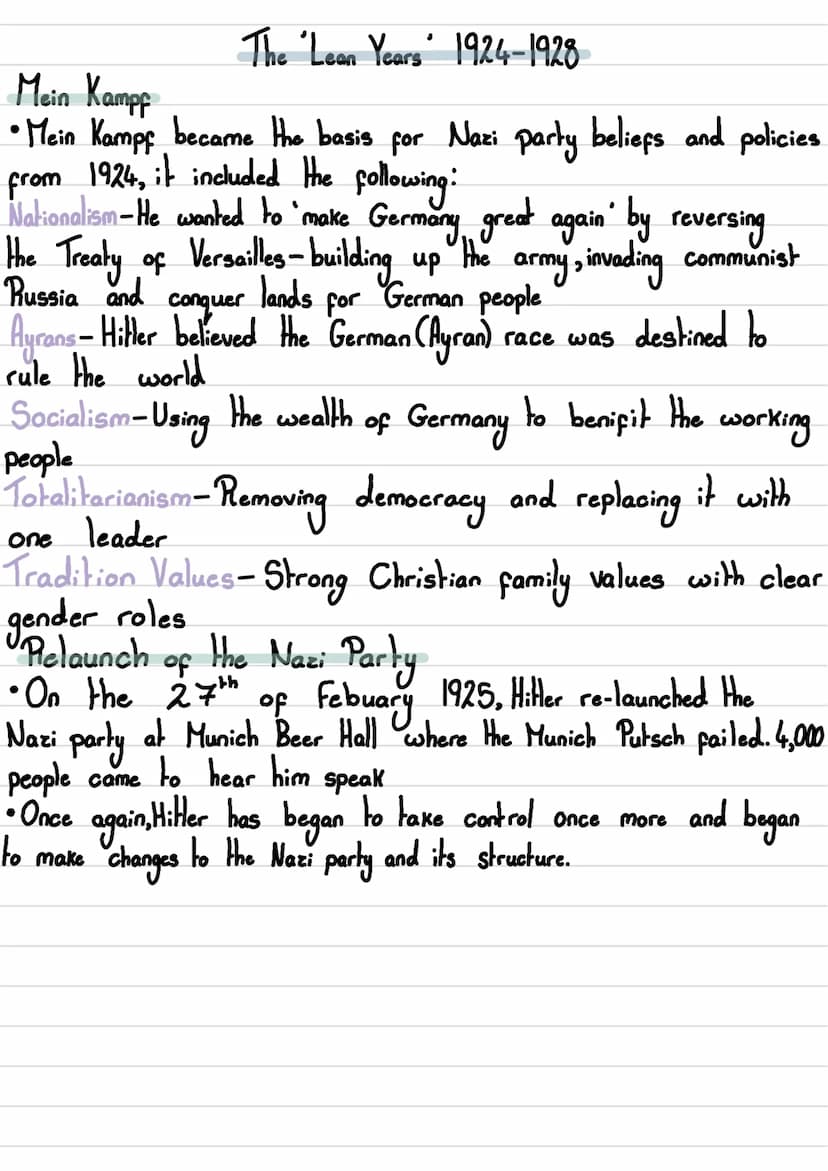 The 'Lean Years' 1924-1928
Mein Kampf
•Mein Kampf became the basis for Nazi party beliefs and policies
from 1924, it included the following:
Nationalism-He wanted to 'make Germany great again' by reversing
the Treaty of Versailles-building up the army, invading communist
Russia and conquer lands for German people
Ayrans-Hitler believed the German (Ayran) race was destined to
rule the world
Socialism-Using the wealth of Germany to benifit the working
people
Totalitarianism-Removing democracy and replacing it with
one leader
Tradition Values-Strong Christian family values with clear
gender roles
Relaunch of the Nazi Party
•On the 27th of Febuary 1925, Hitler re-launched the
Nazi party at Munich Beer Hall where the Munich Putsch failed. 4,000
people came to hear him speak
•Once again, Hitler has began to take control once more and began
to make changes to the Nazi party and its structure.